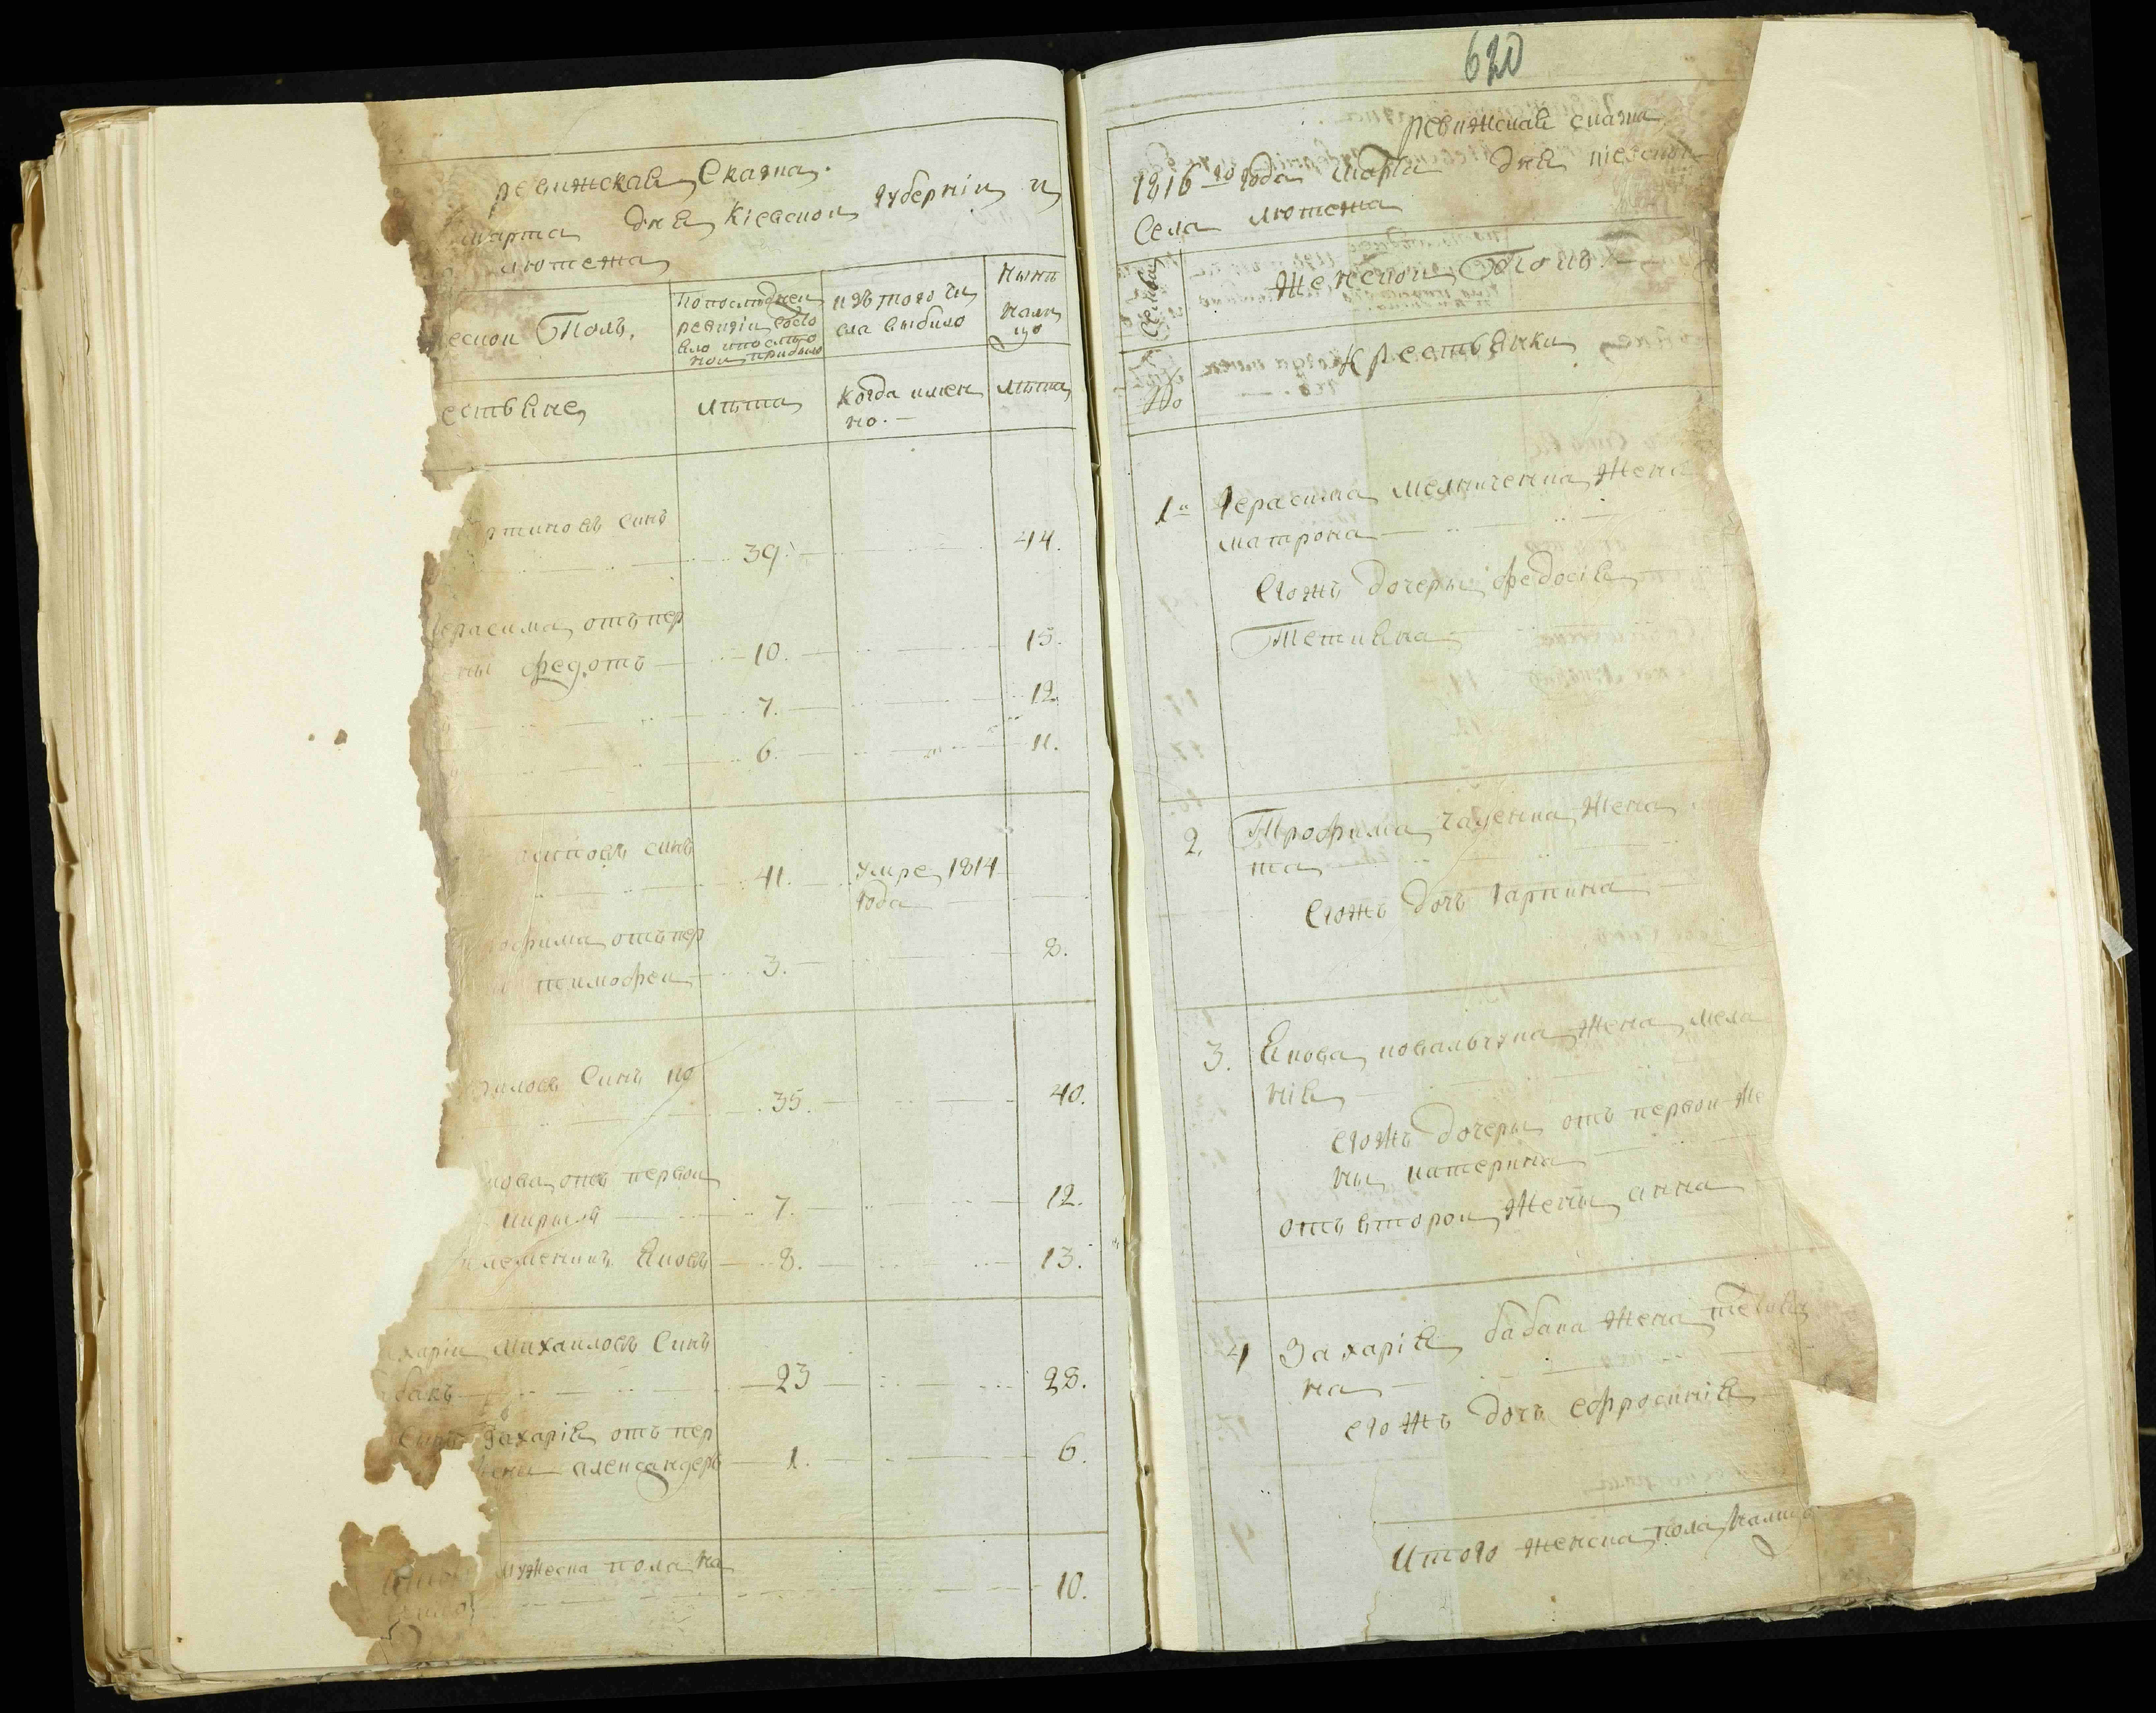 ревижская Сказка.
марта дня Кіевской Губерніи и
лютежа
еской Полъ.
По последней
ревизіи состо
яло и после
ной прибыло
изъ того чи
сла выбыло
Ныне
нали
цо
естьяне
лета
когда имен
но.
лета
ртиновъ Синъ
39. 44.
ерасима отъ пер
ны федотъ 10. 15.
7. 12
6. 11.
повъ синъ
41. умре 1814
года
офима отъ пер
тимофей 3. 8.
иловъ Синъ ко
35. 40.
кова отъ первой
кирыла 7. 12.
племеникъ Яковъ 8. 13.
харій Михайловъ Синъ
бакъ 23 28.
Сынъ Захарія отъ пер
жены александеръ 1. 6.
мужеска пола на
10.
620
ревижская сказка
1816го года марта дня кіевской
Села лютежа
Семьи
№
Женской Полъ.
Крестьянки
1я Герасима мелниченка Жена
матрона
Егожъ дочеры федосія
Тетияна
2. Трофима гаценка Жена
та
Егожъ дочъ гарпина
3. Якова ковальчука Жена мела
нія
Егожъ дочеры отъ первой же
ны катерина
отъ второй жены анна
4 Захарія бабака жена
на
егожъ дочъ ефросинія
Итого женска пола налицо